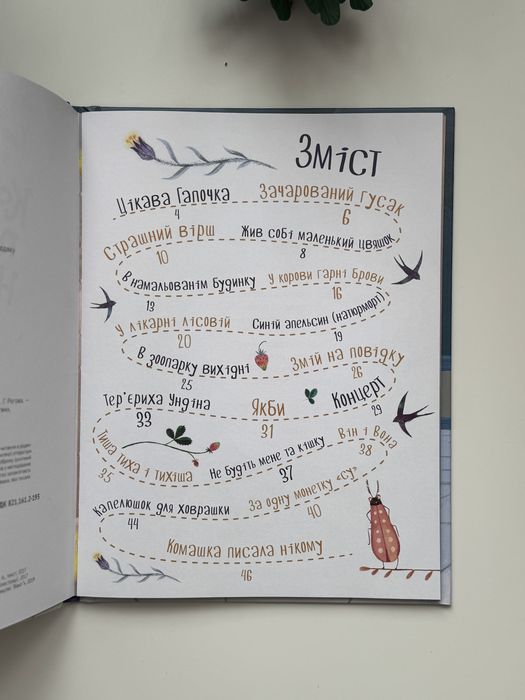 Зміст
Цікава Гапочка Зачарований гусак
4 6
Страшний вірш Жив собі маленький цвяшок
10 8
В намальованім будинку У корови гарні брови
13 16
У лікарні лісовій Синій апельсин (натюрморт)
20 19
В зоопарку вихідні Змій на повідку
25 26
Тер'єриха Ундіна Якби Концерт
33 31 29
Тиша тиха і тихіша Не будіть мене та кішку Він і Вона
35 37 38
Капелюшок для ховрашки За одну монетку «СУ»
44 40
Комашка писала нікому
46
УДК 821.161.2-193